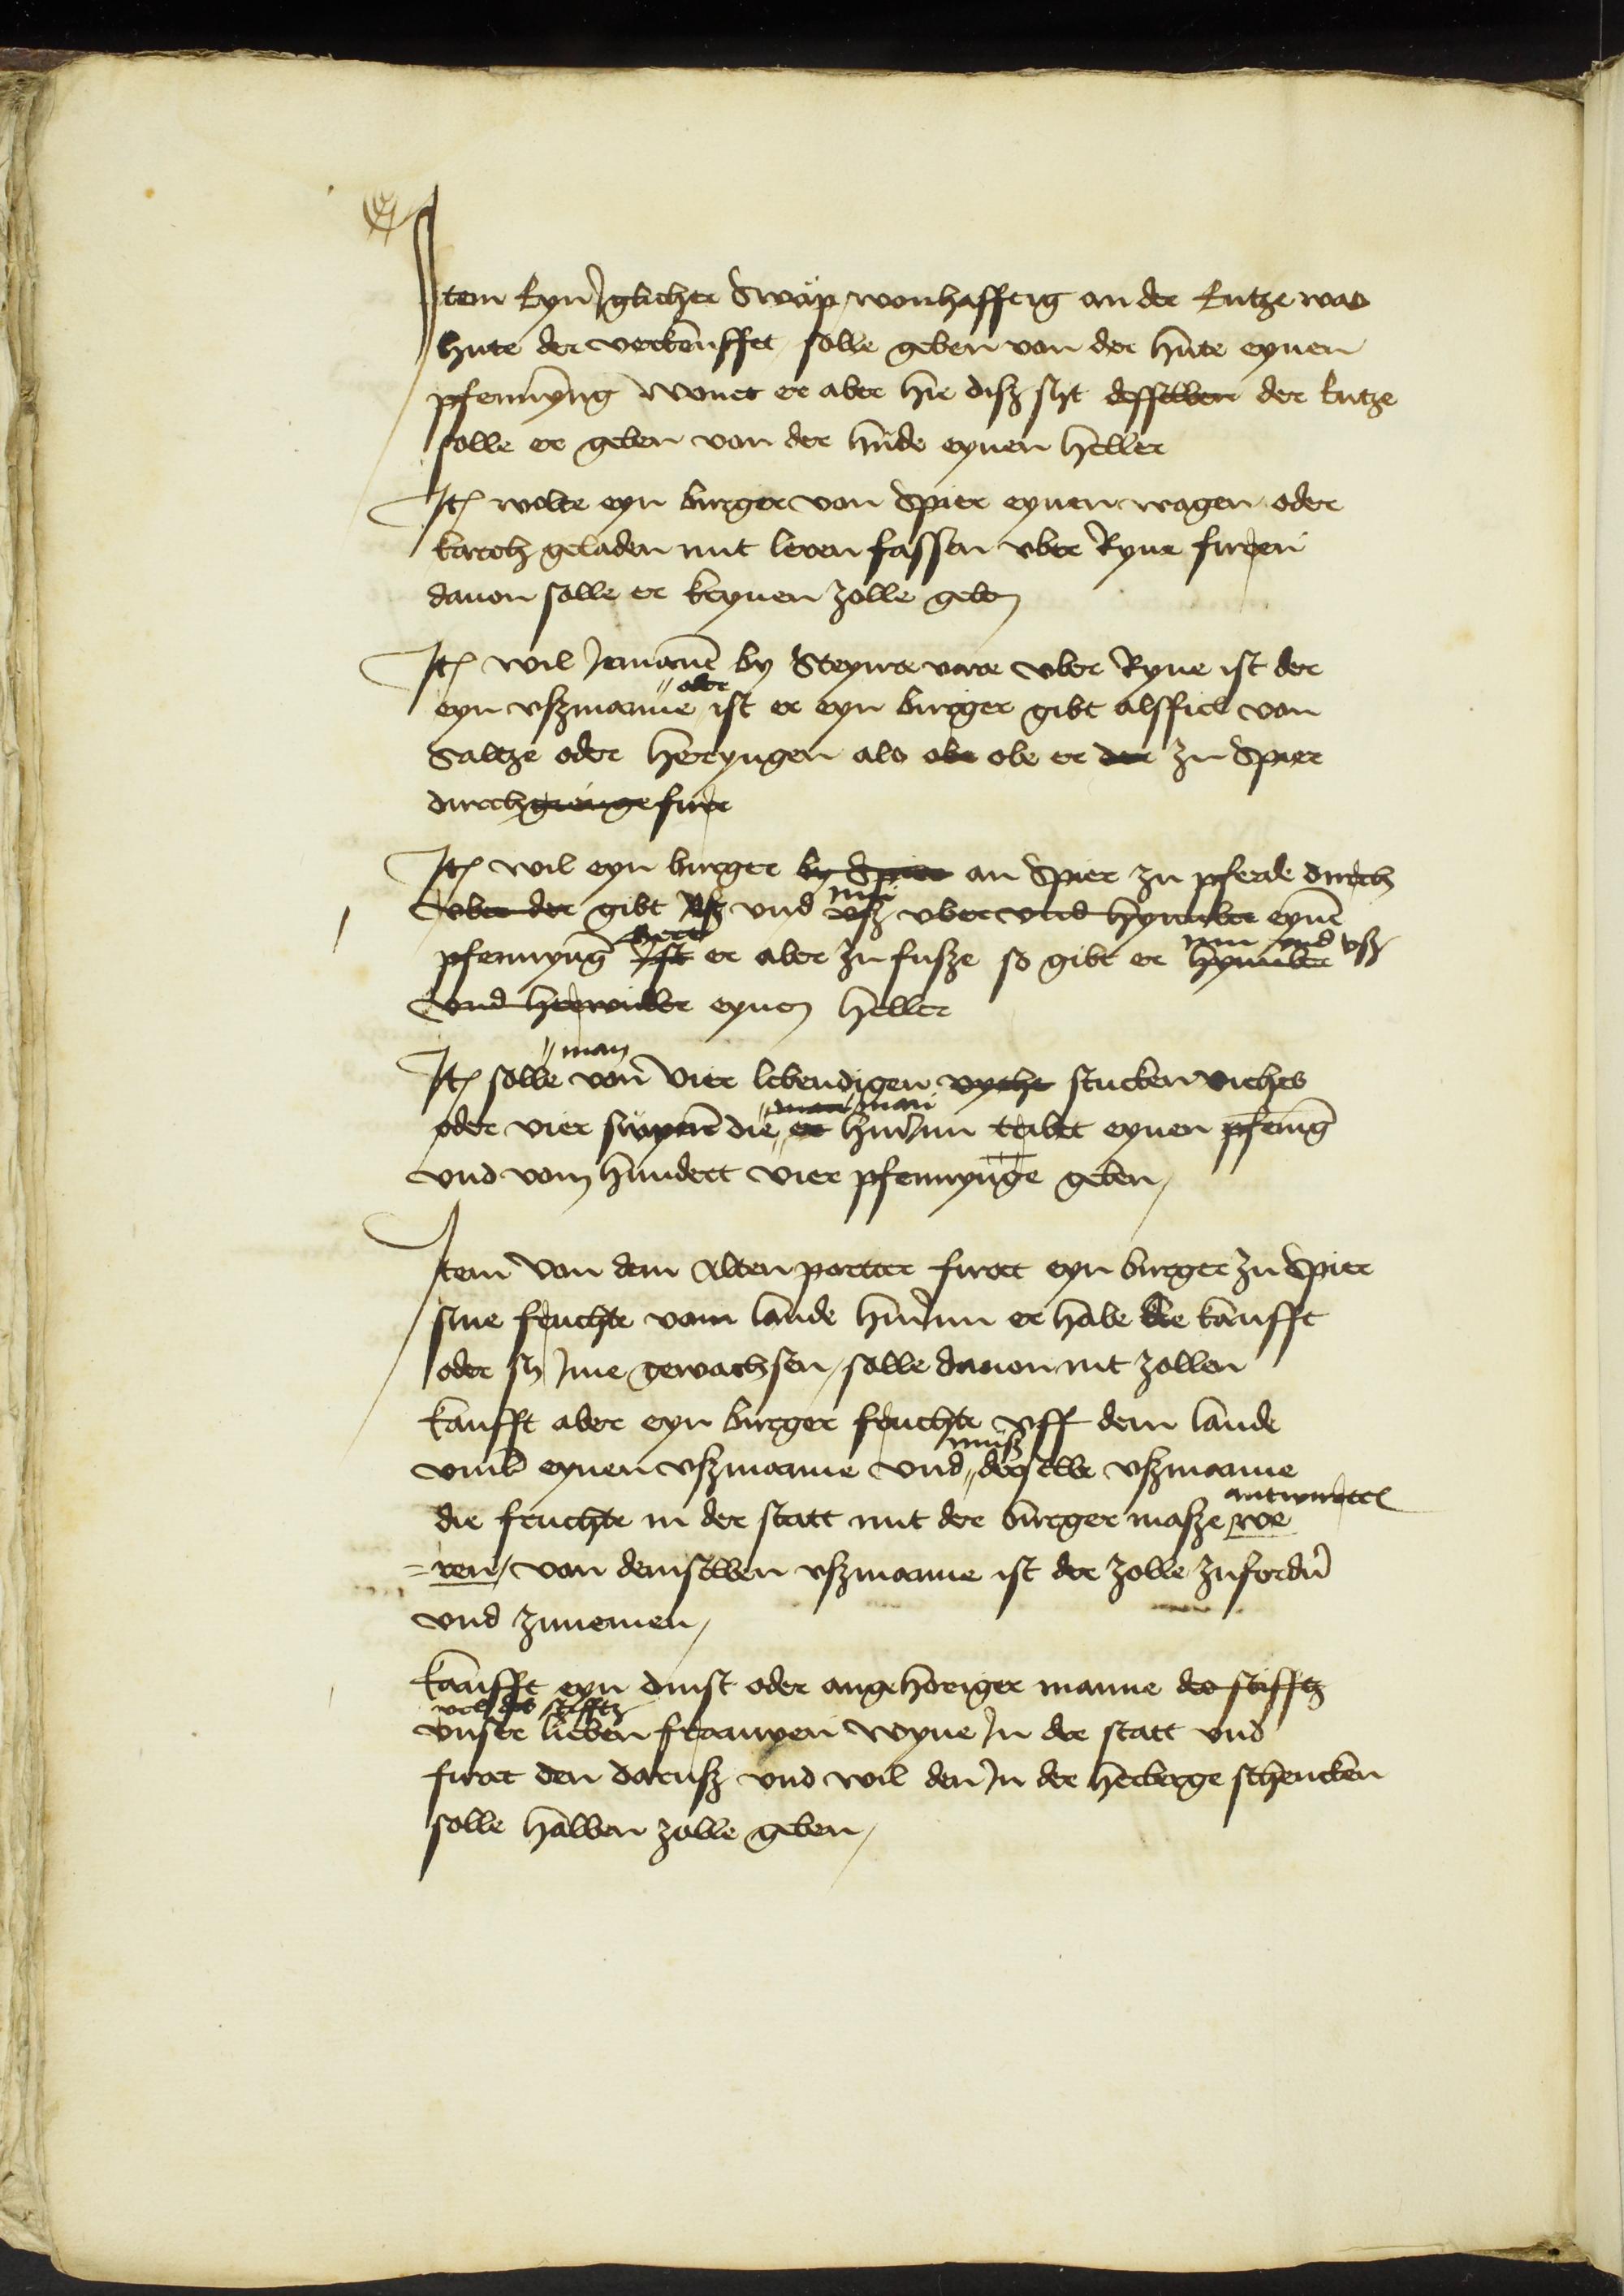 Item Eyn Iglicher Swap wonhafftig an der Entze was
hute der verkeufft solle geben von der hute eynen
pfennyng wonet er aber hie disz syt desselben der Entze
solle er geben von der hude eynen heller
Itē wolte eyn burger von Spier eynen wagen oder
karch geladen mit leren fassen vber Ryne furen
dauon solle er keynen zolle geben
Itē wil Iemant by vare vber Ryne ist der
eyn vszmanne aber ist er eyn burger gibt alssviel von
Saltze oder heryngen als obe er der zu Spier
durch fure
Itē wil eyn burger by Spier an Spier zu pferde durch
vber der gibt vsz vnd vsz vber vnd hynuber eynē
pfennyng er aber zu fusze so gibt er hynuber vnd vsz
vnd herwidder eynen heller
Itē solle man von vier lebendigen stucken viehes
oder vier die er man hinin tribt eynen pfennig
vnd vom hundert vier pfennynge geben
Item von dem Alten portter furet eyn burger zu Spier
sine fruchte vom lande hinin er habe die kaufft
oder sy Ime gewachsen solle dauon nit zollen
kaufft aber eyn burger fruchte vff dem lande
vmb eynen vszmanne vnd musz derselbe vszmanne
die fruchte in der statt mit der burger masze antwurtten we
ren von demselben vszmanne ist der zolle zufordern
vnd zunemen
kaufft eyn dinst oder angehoriger manne des stiffts
des stiffts
vnser lieben frauwen wyne In der statt vnd
furet den darusz vnd wil den In der herberge schencken
solle halben zolle geben